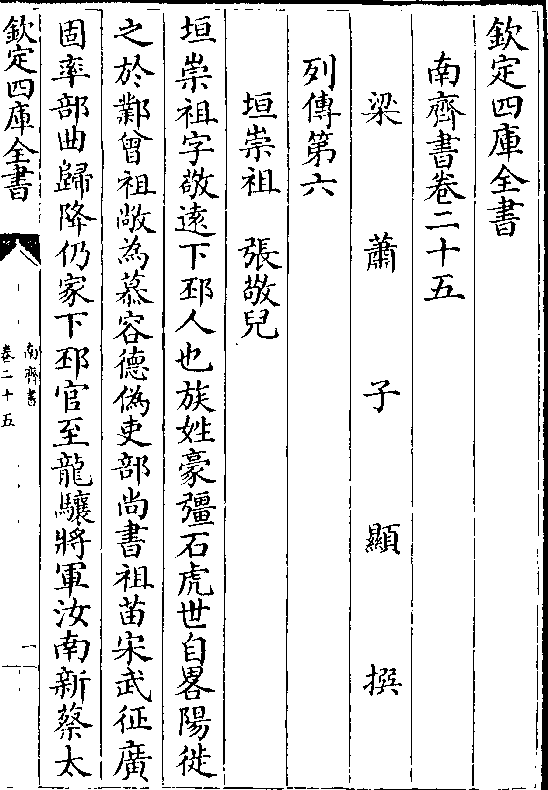 欽定四庫全書
南齊書卷二十五
梁蕭子顯撰
列傳第六
垣崇祖 張敬兒
垣崇祖字敬遠下邳人也族姓豪彊石虎世自畧陽徙
之於鄴曾祖敞為慕容德偽吏部尚書祖苗宋武征廣
固率部曲歸降仍家下邳官至龍驤將軍汝南新蔡太
欽定四庫全書
南齊書
卷二十五
一